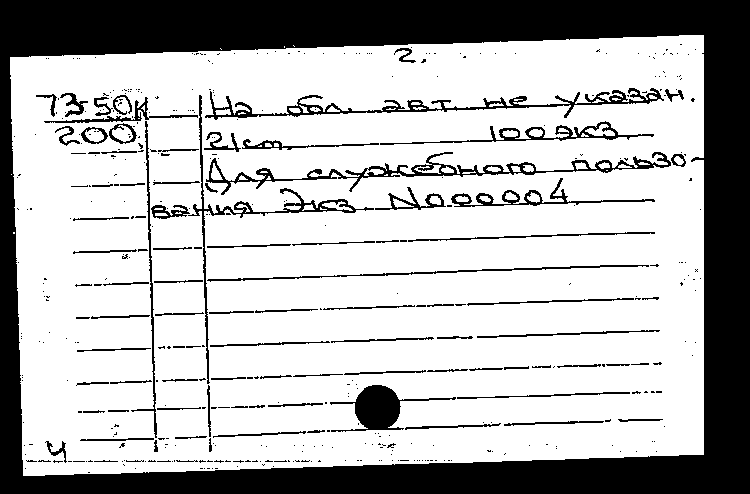 2.
73-50к На обл. авт. не указан.
200. 21cm. 100 экз.
Для служебного пользо-
вания. Экз. N000004.
ч